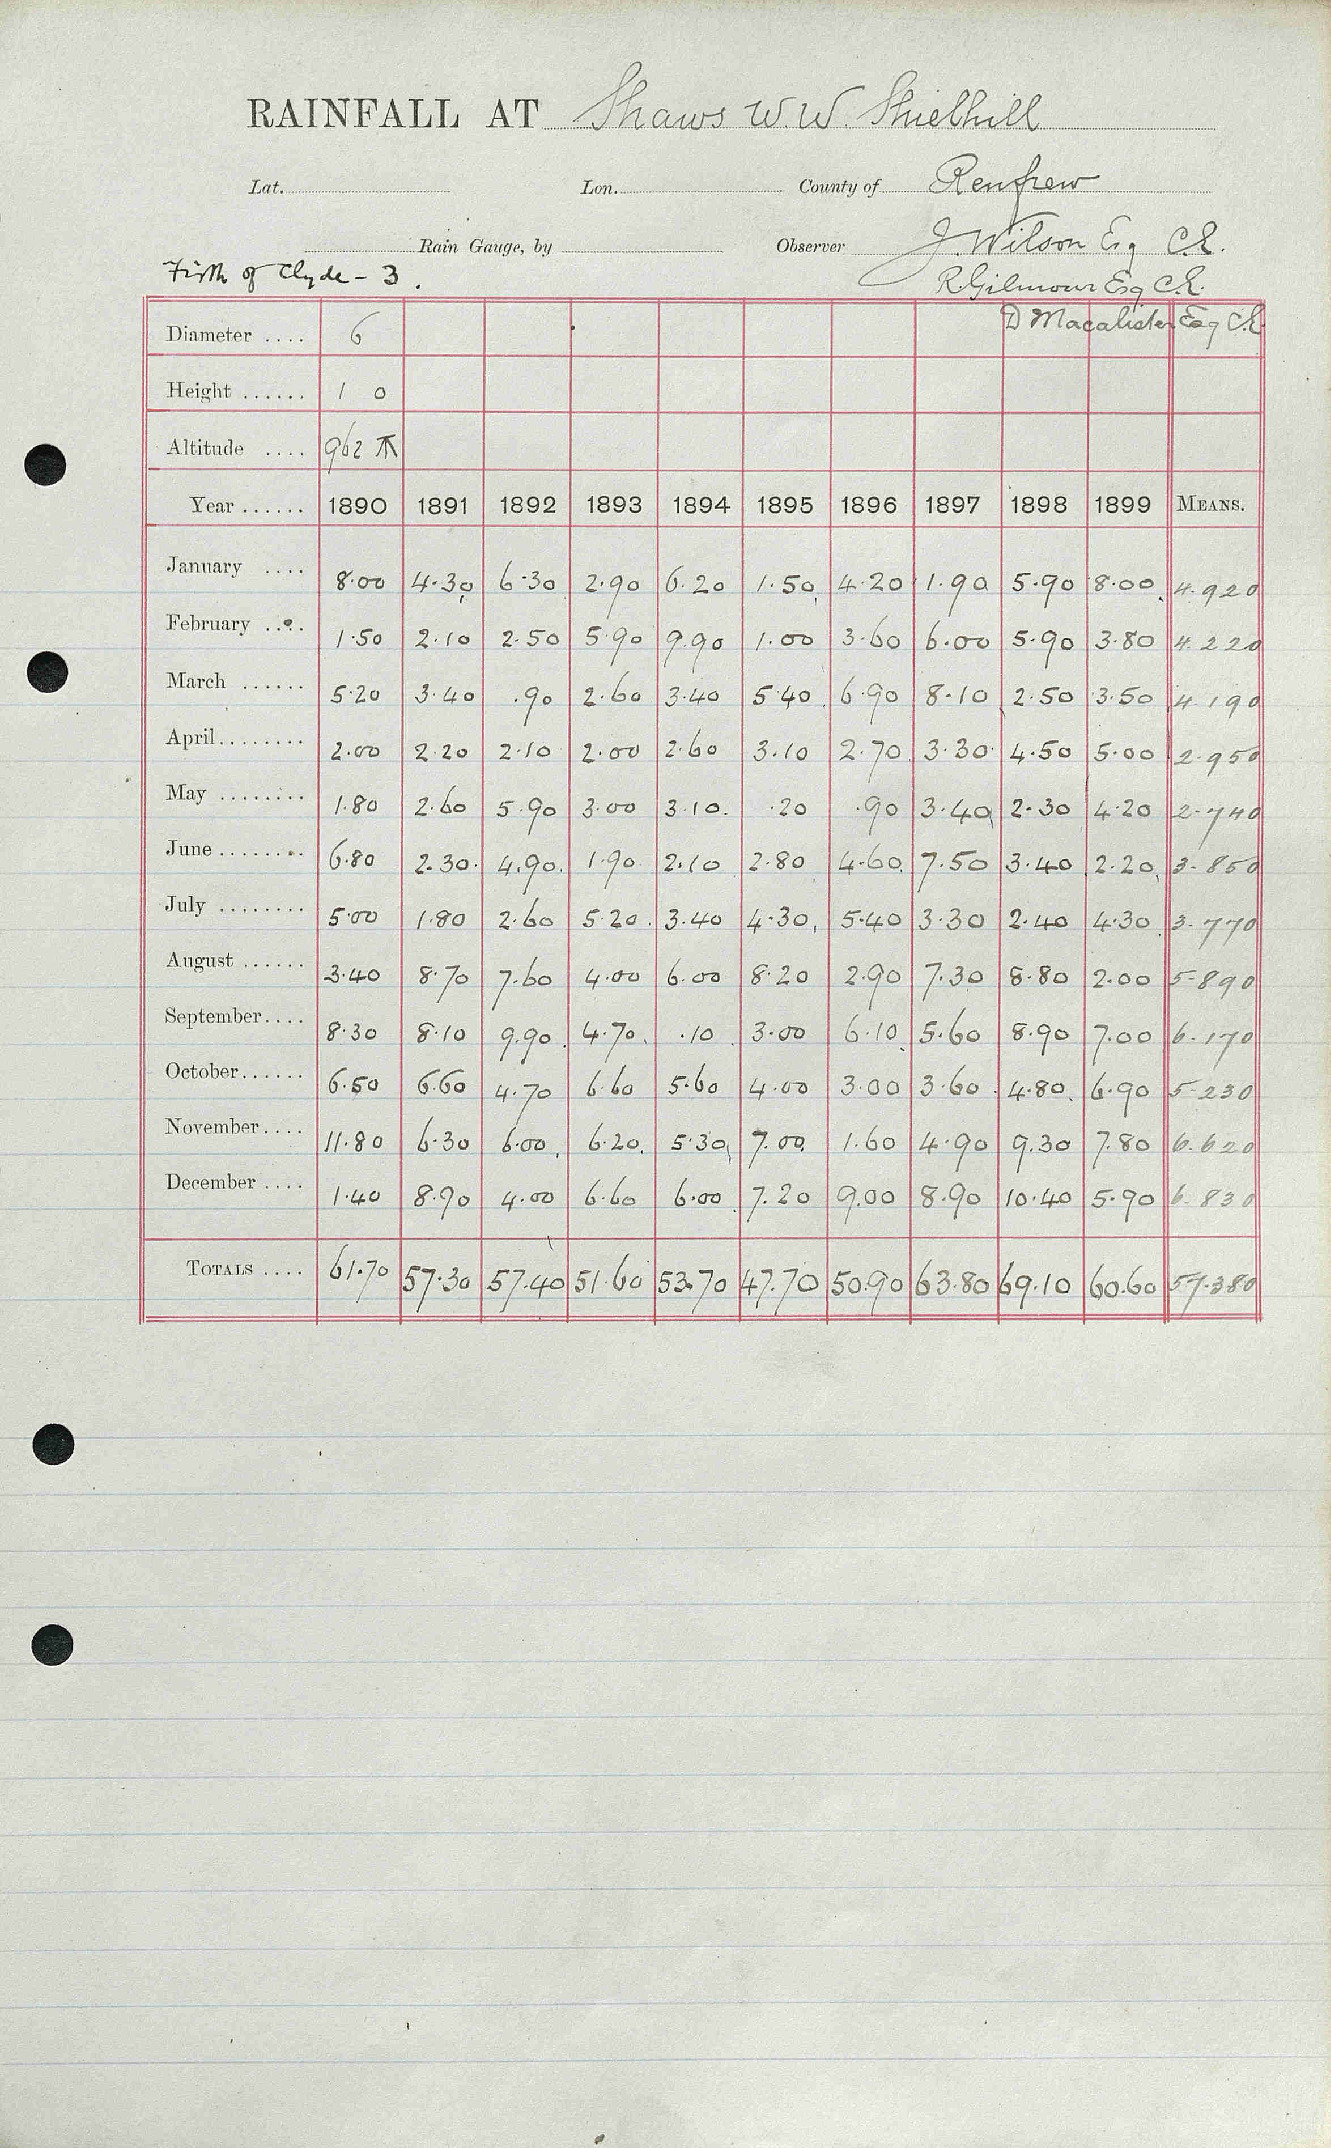 RAINFALL AT Shaws W.W. Shielhill
Lat. Lon. County of Renfrew
Rain Gauge, by Observer J. Wilson Esq C.E.
Firth of Clyde - 3. R. Gilmour Esq C.E.
D Macalister Esq C.E.
Diameter .... 6
Height ...... 1 0
Altitude .... 962
Year ...... 1890 1891 1892 1893 1894 1895 1896 1897 1898 1899 MEANS.
January .... 8.00 4.30 6.30 2.90 6.20 1.50 4.20 1.90 5.90 8.00 4.920
February .... 1.50 2.10 2.50 5.90 9.90 1.00 3.60 6.00 5.90 3.80 4.220
March ...... 5.20 3.40 .90 2.60 3.40 5.40 6.90 8.10 2.50 3.50 4.190
April........ 2.00 2.20 2.10 2.00 2.60 3.10 2.70 3.30 4.50 5.00 2.950
May ........ 1.80 2.60 5.90 3.00 3.10 .20 .90 3.40 2.30 4.20 2.740
June ........ 6.80 2.30 4.90 1.90 2.10 2.80 4.60 7.50 3.40 2.20 3.850
July ........ 5.00 1.80 2.60 5.20 3.40 4.30 5.40 3.30 2.40 4.30 3.770
August ...... 3.40 8.70 7.60 4.00 6.00 8.20 2.90 7.30 8.80 2.00 5.890
September.... 8.30 8.10 9.90 4.70 .10 3.00 6.10 5.60 8.90 7.00 6.170
October...... 6.50 6.60 4.70 6.60 5.60 4.00 3.00 3.60 4.80 6.90 5.230
November.... 11.80 6.30 6.00 6.20 5.30 7.00 1.60 4.90 9.30 7.80 6.620
December .... 1.40 8.90 4.00 6.60 6.00 7.20 9.00 8.90 10.40 5.90 6.830
TOTALS .... 61.70 57.30 57.40 51.60 53.70 47.70 50.90 63.80 69.10 60.60 57.380